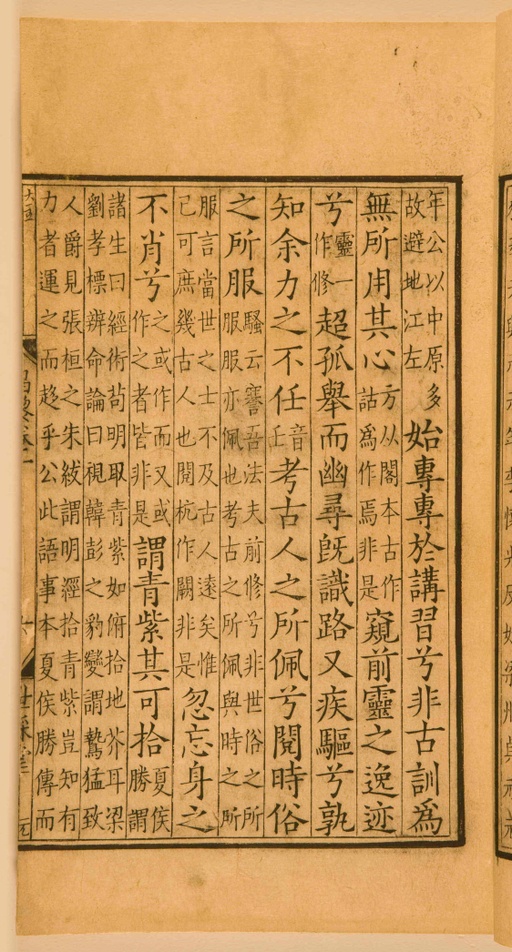 年公以中原多
故避地江左
始專專於講習兮非古訓為
無所用其心
方从閣本古作
詁為作焉非是
窺前靈之逸迹
兮
靈一
作修
超孤舉而幽尋旣識路又疾驅兮孰
知余力之不任
音
壬
考古人之所佩兮閱時俗
之所服
騷云謇吾法夫前修兮非世俗之所
服服亦佩也考古之所佩與時之所
服言當世之士不及古人遠矣惟
已可庶幾古人也閱杭作闕非是
忽忘身之
不肖兮
之或作而又或
作之者皆非是
謂青紫其可拾
夏侯
勝謂
諸生曰經術苟明取青紫如俯拾地芥耳梁
劉孝標辨命論曰視韓彭之豹變謂鷙猛致
人爵見張桓之朱紱謂明經拾青紫豈知有
力者運之而趍乎公此語事本夏侯勝傳而